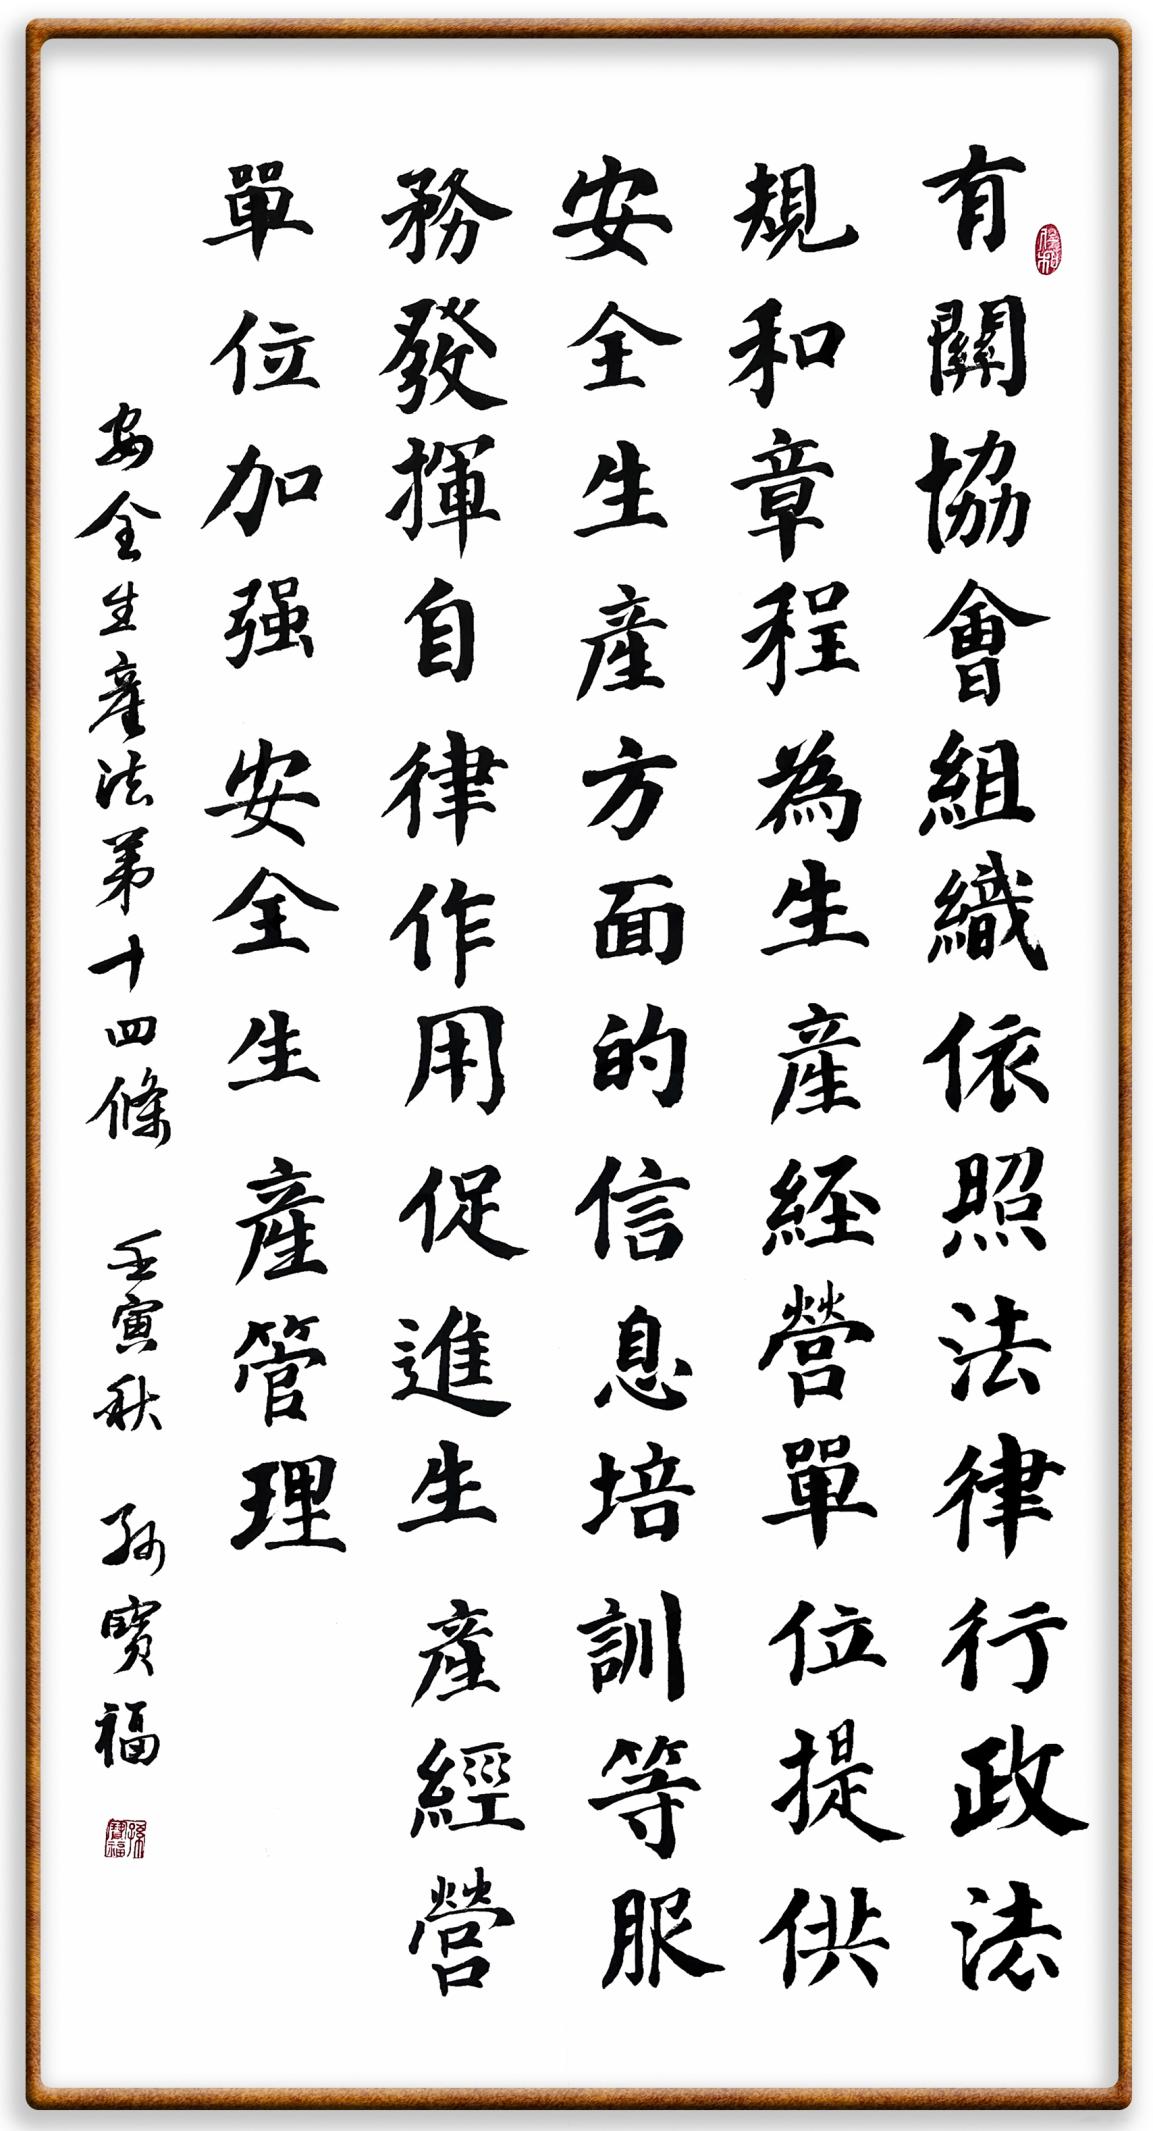 有關協會組織依照法律行政法
規和章程為生產經營單位提供
安全生產方面的信息培訓等服
務發揮自律作用促進生產經營
單位加强安全生產管理
安全生產法第十四條 壬寅秋 孫寶福
孫寶福